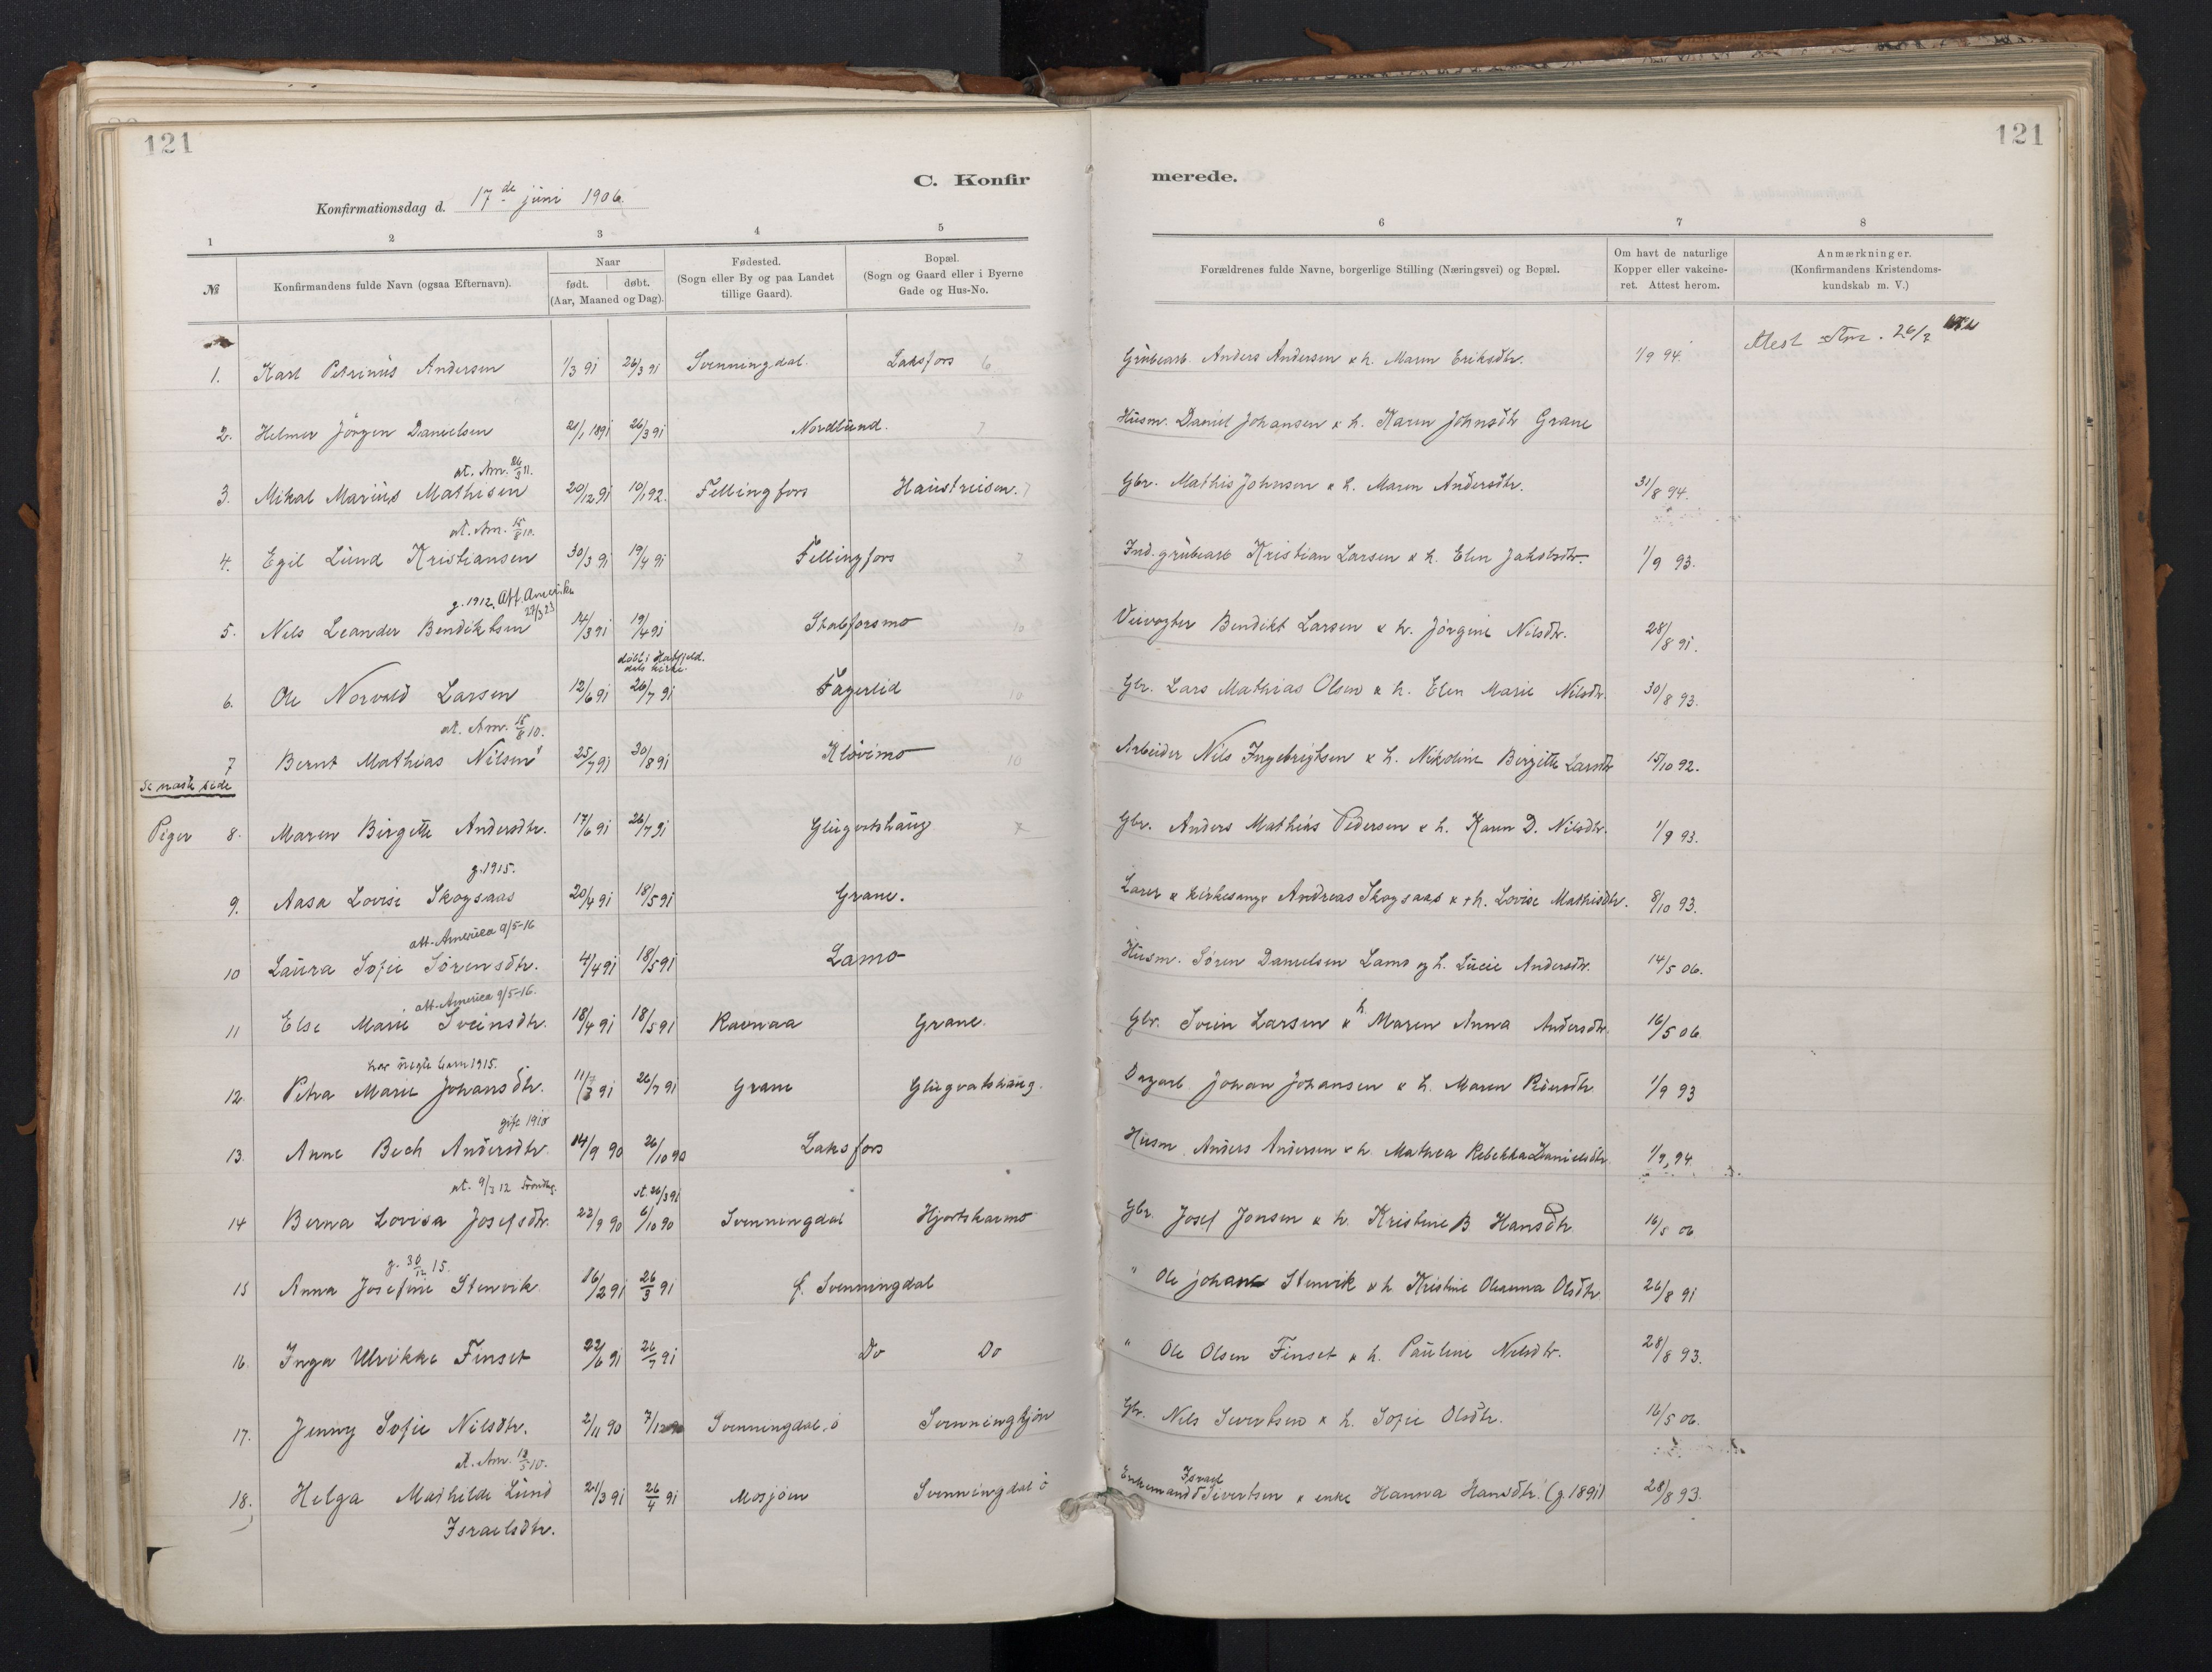 121
121
C. Konfirmerede.
Konfirmationsdag d. 17de juni 1906
1 2 3 4 5 6 7 8
№ Konfirmandens fulde Navn (ogsaa Efternavn). Naar født. døbt. (Aar, Maaned og Dag). Fødested. (Sogn eller By og paa Landet tillige Gaard). Bopæl. (Sogn og Gaard eller i Byerne Gade og Hus-No. Forældrenes fulde Navne, borgerlige Stilling (Næringsvei) og Bopæl. Om havt de naturlige Kopper eller vakcineret. Attest herom. Anmærkninger. (Konfirmandens Kristendomskundskab m. V.)
1. Karl Petrinus Andersen 1/3 91 26/3 91 Svenningdal. Laksfors 6 Grubearb. Anders Andersen & h. Maren Eriksdtr. 1/9 94.
2. Helmer Jörgen Danielsen 21/1 1891 26/3 91 Nordlund. 7 Husm. Daniel Johansen & h. Karen Johnsdtr Grane
at. Am. 26/9 11.
3. Mikal Marius Mathisen 20/12 91 10/1 92. Fellingfors Haustreisen. 7 Gbr. Mathis Johnsen & h. Maren Andersdtr. 31/8 94.
at. Am. 15/8 10.
4. Egil Lund Kristiansen 30/3 91 19/4 91 Fellingfors 7 Ind. grubearb Kristian Larsen & h. Elen Jakobsdtr. 1/9 93.
g. 1912. Att. Amerika 27/3 23
5. Nils Leander Bendiktsen 14/3 91 19/4 91 Stabforsmo 10 Veivogter Bendikt Larsen & h. Jörgine Nilsdtr. 28/8 91.
døbt i Hatfjeld. dals kirke.
6. Ole Norvald Larsen 12/6 91 26/7 91 Fagerlid 10 Gbr. Lars Mathias Olsen & h. Elen Marie Nilsdtr. 30/8 93.
at. Am. 15/8 10.
7 Bernt Mathias Nilsen 25/7 91 30/8 91 Klövimo 10 Arbeider Nils Ingebrigtsen & h. Nikoline Birgitte Larsdtr 15/10 92.
Se næste side
Piger 8. Maren Birgitte Andersdtr. 17/6 91 26/7 91 Glugvatshaug 7 Gbr. Anders Mathias Pedersen & h. Karen D. Nilsdtr. 1/9 93.
g. 1915.
9. Aasa Lovise Skogsaas 20/4 91 18/5 91 Grane. Lærer & kirkesang. Andreas Skogsaas & + h. Lovise Mathisdtr. 8/10 93.
att. America 9/5-16
10 Laura Sofie Sörensdtr. 4/4 91 18/5 91 Lamo Husm. Sören Danielsen Lamo og h. Lucie Andersdtr. 14/5 06.
att. America 9/5-16.
11 Else Marie Sveinsdtr. 18/4 91 18/5 91 Ravnaa Grane. Gbr. Svein Larsen & h. Maren Anna Andersdtr. 16/5 06.
har uegte barn 1915.
12. Petra Marie Johansdtr. 11/7 91 26/7 91 Grane Glugvatshaug. Dagarb. Johan Johansen & h. Maren Pedersdtr 1/9 93
gift 1910
13. Anne Bech Andersdtr. 14/9 90 26/10 90 Laksfors Husm. Anders Andersen & h. Mathea Rebekka Danielsdtr. 1/9, 94
at. 9/3 12
st. 26/3 91
14 Berna Lovisa Josefsdtr. 22/9 90 6/10 90 Svenningdal Hjortskarmo Gbr. Josef Jonsen & h. Kristine B Hansdtr 16/5 06
g. 30/12 15.
15 Anna Josefine Stenvik 16/2 91 26/3 91 f. Svenningdal " Ole Johan Stenvik & h. Kristine Oleanna Olsdtr. 26/8 91
16. Inga Ulrikke Finset 22/6 91 26/7 91 Do Do " Ole Olsen Finset & h. Pauline Nilsdtr. 28/8 93.
17. Jenny Sofie Nilsdtr. 2/11 90 7/12 90 Svenningdal, ö Svenningtjön Gbr. Nils Sivertsen & h. Sofie Olsdtr. 16/5 06.
at. Am. 12/5 10.
18. Helga Mathilde Lund Israelsdtr. 21/3 91 26/4 91 Mosjöen Svenningdal ö Enkemand Israel Sivertsen & enke Hanna Hansdtr. (g. 1891) 28/8 93.